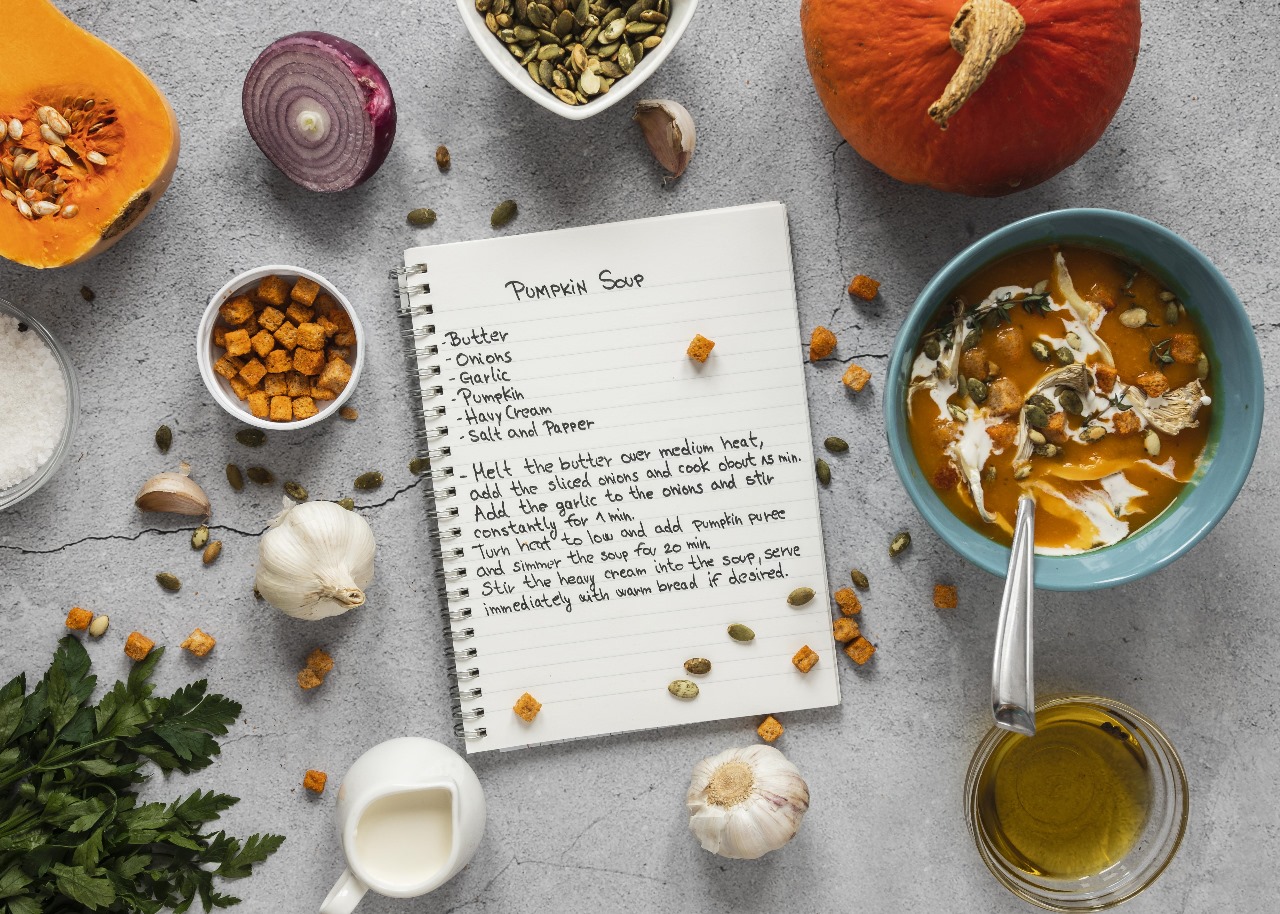 Pumpkin Soup
-Butter
-Onions
-Garlic
-Pumpkin
-Havy Cream
-Salt and Papper
- Melt the butter over medium heat,
add the sliced onions and cook obout 15 min.
Add the garlic to the onions and stir
constantly for 1 min.
Turn heat to low and add pumpkin puree
and simmer the soup for 20 min.
Stir the heavy cream into the soup, serve
immediately with warm bread if desired.